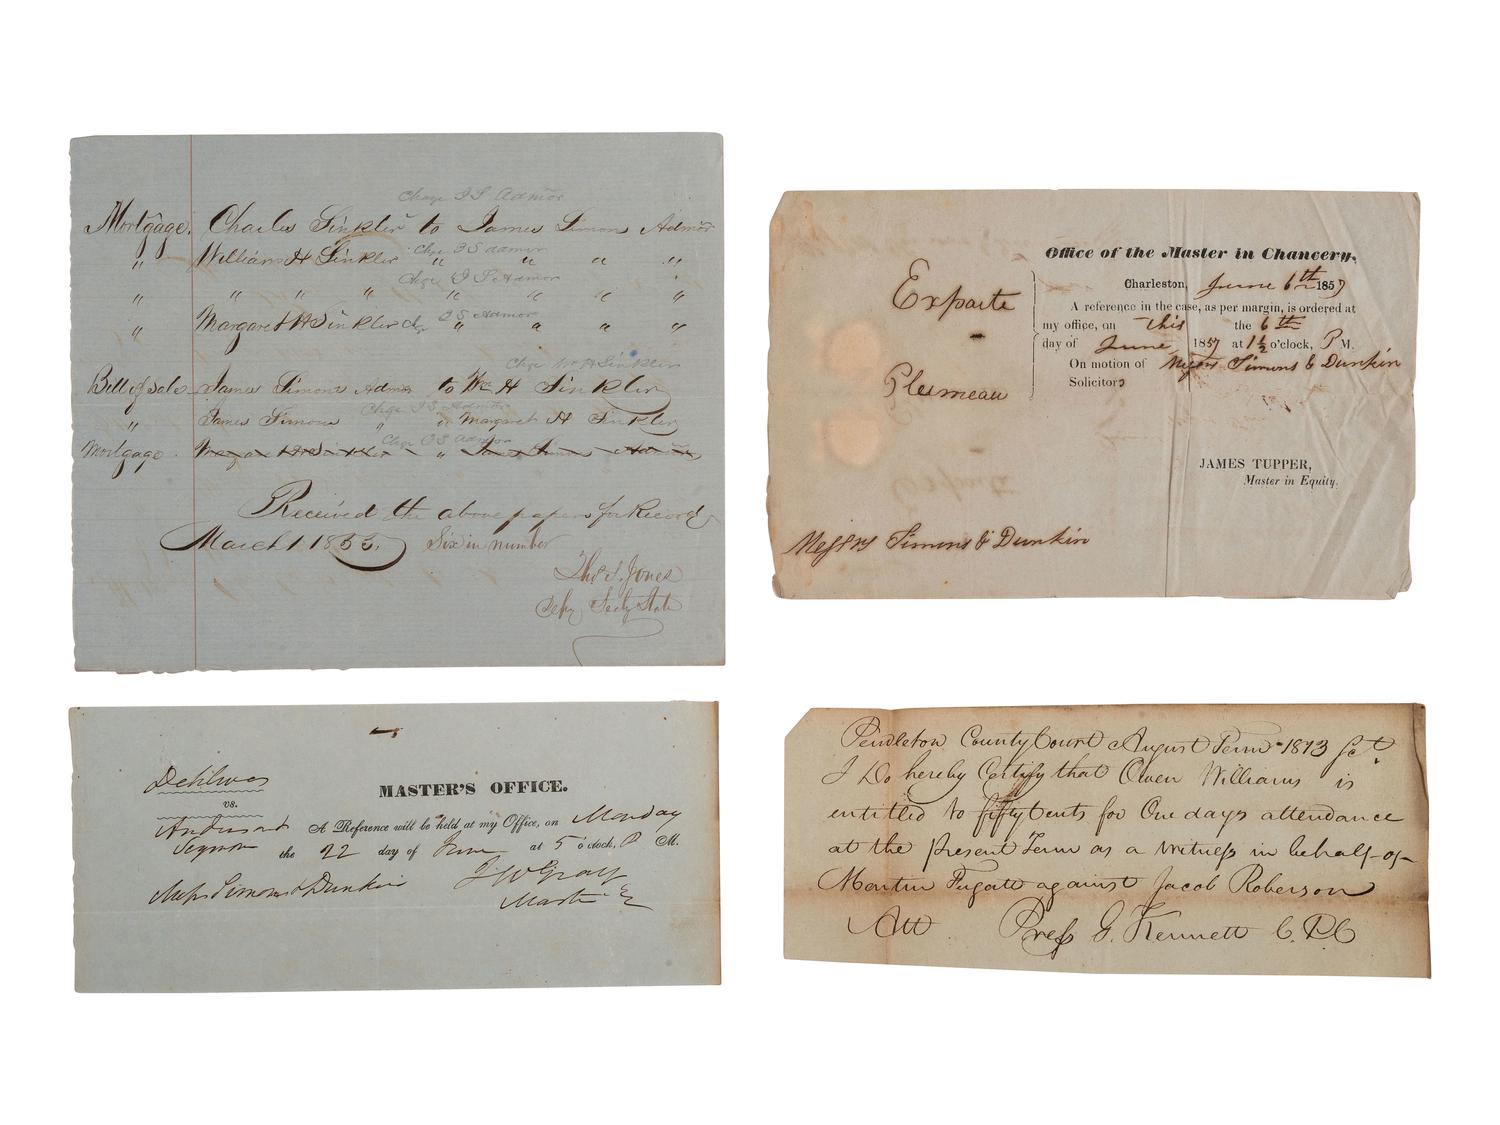 Chge J S Admor
Mortgage. Charles Sinkler to James Simons Admor
" William H Sinkler Chge J S Admor " " " "
Chge J S Admor
" " " " " " " "
" Margaret H Sinkler Chge J S Admor " " " "
Chge Wm H Sinkler
Bill of Sale James Simons Admor to Wm H Sinkler
Chge J S Admor
" James Simons " " Margaret H Sinkler
Chge J S Admor
Mortgage Margaret H Sinkler " James Simons Admor
Received the above papers for Record
March 1 1855. Six in number
Thos. S. Jones
Depy Secty State
Office of the Master in Chancery,
Charleston, June 6th 1857
Exparte
Plumeau
A reference in the case, as per margin, is ordered at
my office, on this the 6th
day of June 1857 at 1½ o'clock, P M.
On motion of Messrs Simons & Dunkin
Solicitors
JAMES TUPPER,
Master in Equity.
Messrs Simons & Dunkin
vs.
MASTER'S OFFICE.
A Reference will be held at my Office, on Monday
the 22 day of June at 5 o'clock, P M.
Messrs Simons & Dunkin
J W Gray
Master
Pendleton County Court August Term 1813 Sct.
I Do hereby Certify that Owen Williams is
entitled to fifty Cents for One days attendance
at the present Term as a witness in behalf of
Martin Fugate against Jacob Roberson
Att Press G. Kennett C.P.C